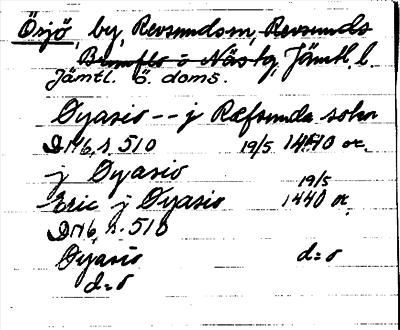 Ösjö, by, Revsundsn, Revsunds
Brunflo o Näs tg, Jämtl. l.
Jämtl. ö. doms.
Øyasio -- j Ræfsunda sokn
DN 16, s. 510 19/5 1440 or.
j Øyasio
Eric j Øyasio 19/5 1440 or.
DN 16, s. 510
Øyasio d:o
d:o